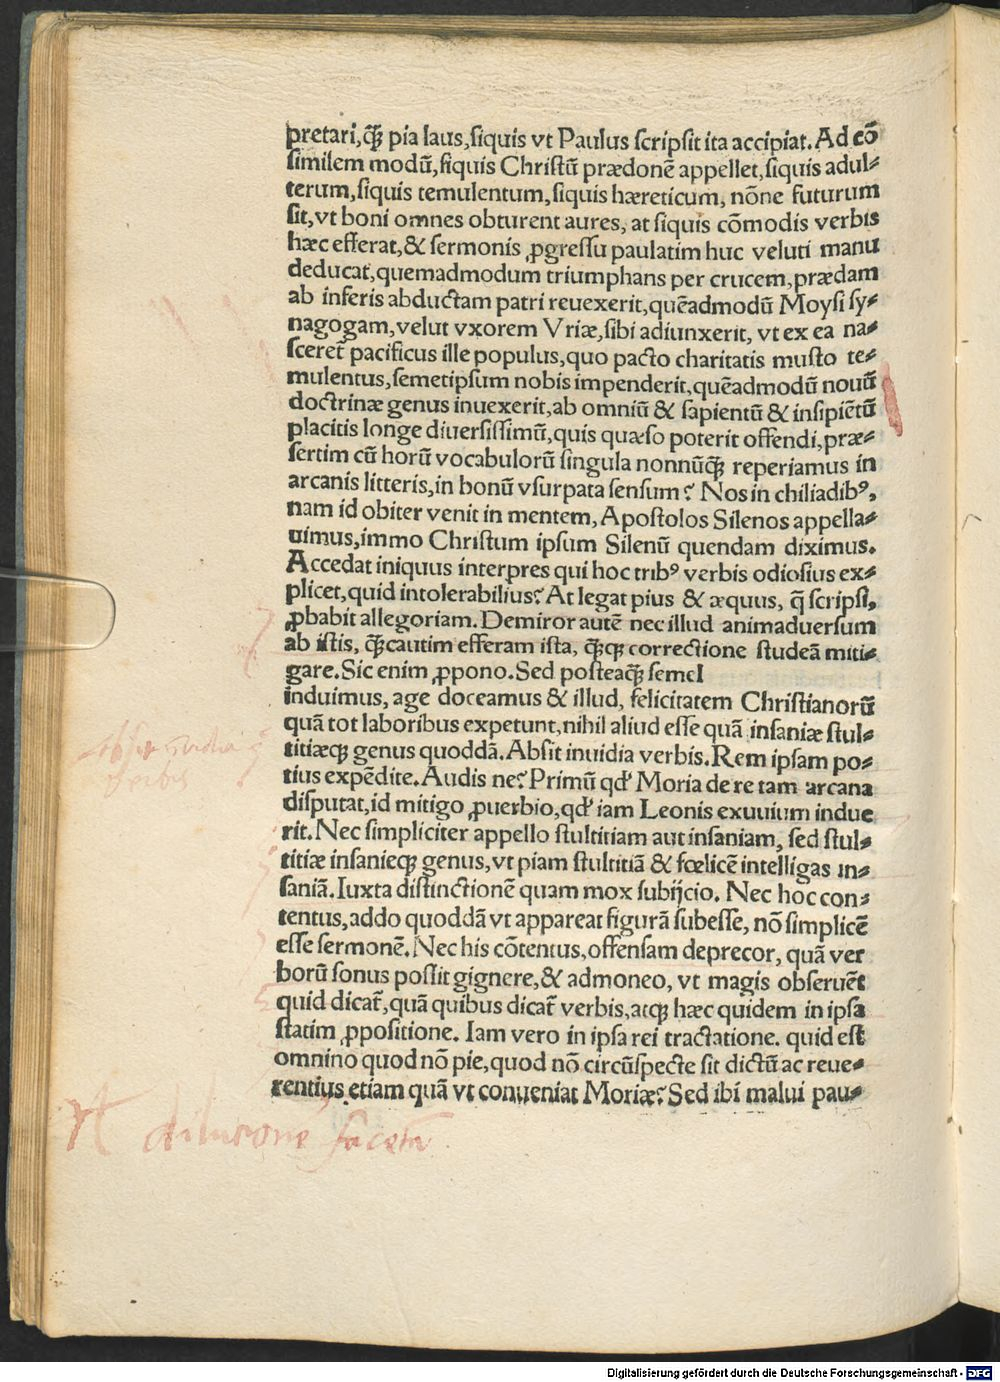 pretari, q̃ꝫ pia laus, siquis vt Paulus scripsit ita accipiat. Ad eō
similem modũ, siquis Christũ prædonē appellet, siquis adul⸗
terum, siquis temulentum, siquis hæreticum, nōne futurum
sit, vt boni omnes obturent aures, at siquis cōmodis verbis
hæc efferat, & sermonis ꝓgressu paulatim huc veluti manu
deducat̃, quemadmodum triumphans per crucem, prædam
ab inferis abductam patri reuexerit, quēadmodũ Moysi sy⸗
nagogam, velut vxorem Vriæ, sibi adiunxerit, vt ex ea na⸗
sceret̃ pacificus ille populus, quo pacto charitatis musto te⸗
mulentus, semetipsum nobis impenderit, quēadmodũ nouũ
doctrinæ genus inuexerit, ab omniũ & sapientũ & insipiētũ
placitis longe diuersissimũ, quis quæso poterit offendi, præ⸗
sertim cũ horũ vocabulorũ singula nonnũq̃ꝫ reperiamus in
arcanis litteris, in bonũ vsurpata sensum? Nos in chiliadibꝰ,
nam id obiter venit in mentem, Apostolos Silenos appella⸗
uimus, immo Christum ipsum Silenũ quendam diximus.
Accedat iniquus interpres qui hoc tribꝰ verbis odiosius ex⸗
plicet, quid intolerabilius? At legat pius & æquus, q̃ scripsi,
ꝓbabit allegoriam. Demiror autē nec illud animaduersum
ab istis, q̃ꝫ cautim efferam ista, q̃ꝫqꝫ correctione studeā miti⸗
gare. Sic enim ꝓpono. Sed posteaq̃ꝫ semel
induimus, age doceamus & illud, felicitatem Christianorũ
quā tot laboribus expetunt, nihil aliud esse quā insaniæ stul⸗
titiæqꝫ genus quoddā. Absit inuidia verbis. Rem ipsam po⸗
tius expēdite. Audis ne? Primũ qđ Moria de re tam arcana
disputat, id mitigo ꝓuerbio, qđ iam Leonis exuuium indue
rit. Nec simpliciter appello stultitiam aut insaniam, sed stul⸗
titiæ insanieqꝫ genus, vt piam stultitiā & fœlicē intelligas in⸗
saniā. Iuxta distinctionē quam mox subijcio. Nec hoc con⸗
tentus, addo quoddā vt appareat figurā subesse, nō simplicē
esse sermonē. Nec his cōtentus, offensam deprecor, quā ver
borũ sonus possit gignere, & admoneo, vt magis obseruēt
quid dicat̃, quā quibus dicat̃ verbis, atqꝫ hæc quidem in ipsa
statim ꝓpositione. Iam vero in ipsa rei tractatione. quid est
omnino quod nō pie, quod nō circũspecte sit dictũ ac reue⸗
rentius etiam quā vt conueniat Moriæ? Sed ibi malui pau⸗
Absit inuidia
verbis
Digitalisierung gefördert durch die Deutsche Forschungsgemeinschaft - DFG